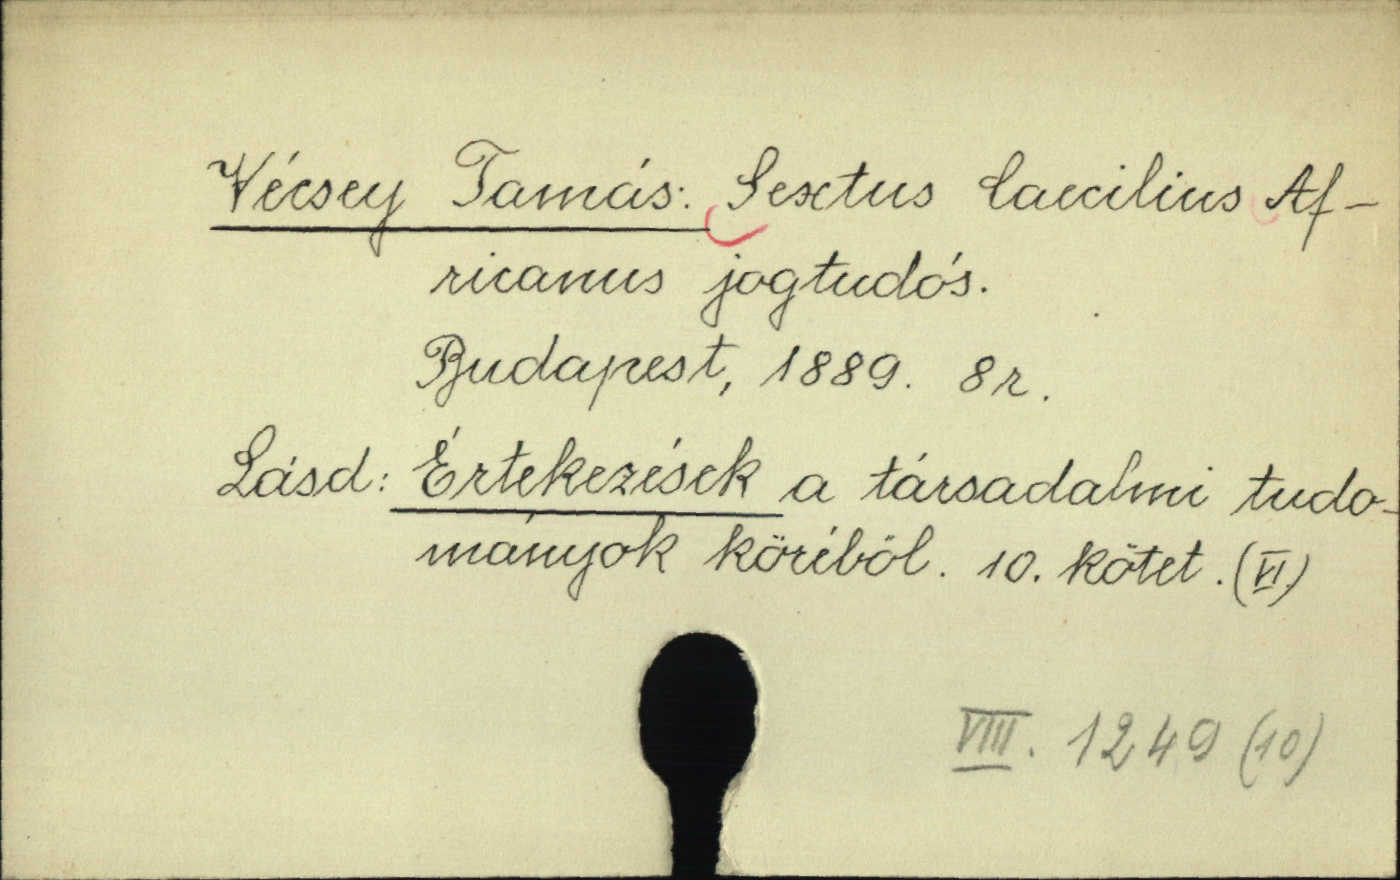 Vécsey Tamás: Sextus Caecilius Af-
ricanus jogtudós.
Budapest, 1889. 8r.
Lásd: Értekezések a társadalmi tudo-
mányok köréböl. 10. kötet. (VI.)
VIII. 1249 (10)